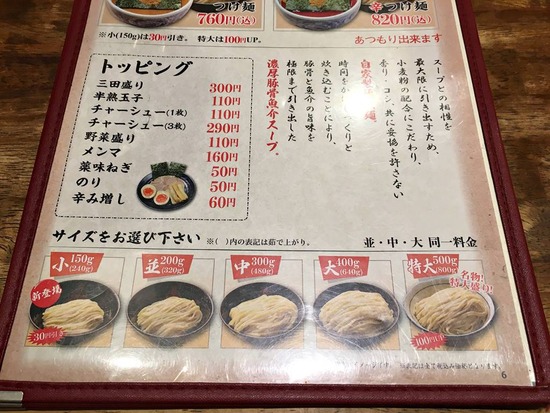 つけ麺
760円(込)
辛つけ麺
820円(込)
※小(150g)は30円引き。 特大は100円UP。
あつもり出来ます
トッピング
三田盛り 300円
半熟玉子 110円
チャーシュー(1枚) 110円
チャーシュー(3枚) 290円
野菜盛り 110円
メンマ 160円
薬味ねぎ 50円
のり 50円
辛み増し 60円
スープとの相性を
最大限に引き出すため、
小麦粉の配合にこだわり、
香り・コシ、共に妥協を許さない
自家製麺。
時間をかけてじっくりと
炊き込むことにより、
豚骨と魚介の旨味を
極限まで引き出した
濃厚豚骨魚介スープ。
サイズをお選び下さい ※( )内の表記は茹で上がり。
並・中・大 同一料金
小 150g (240g)
新登場
30円引き
並 200g (320g)
中 300g (480g)
大 400g (640g)
特大 500g (800g)
名物!
特大盛り!
100円UP
6